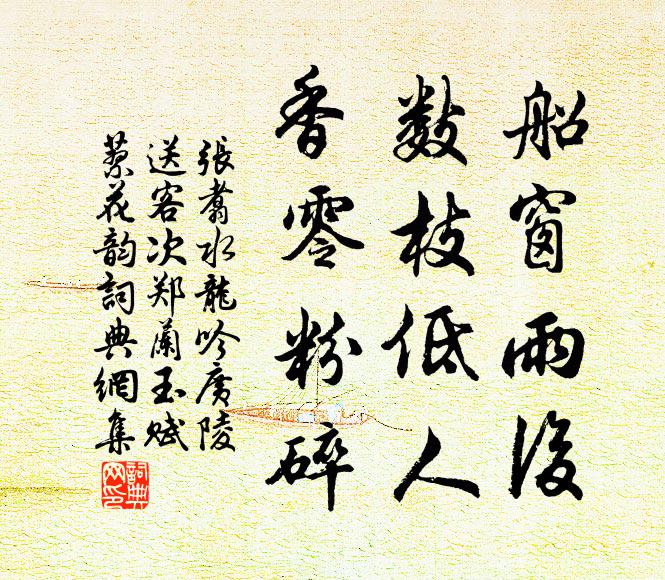 船窗雨後
數枝低入
香零粉碎
張翥水龍吟廣陵
送客次鄭蘭玉賦
蓼花韵詞典網集
詞典
网印